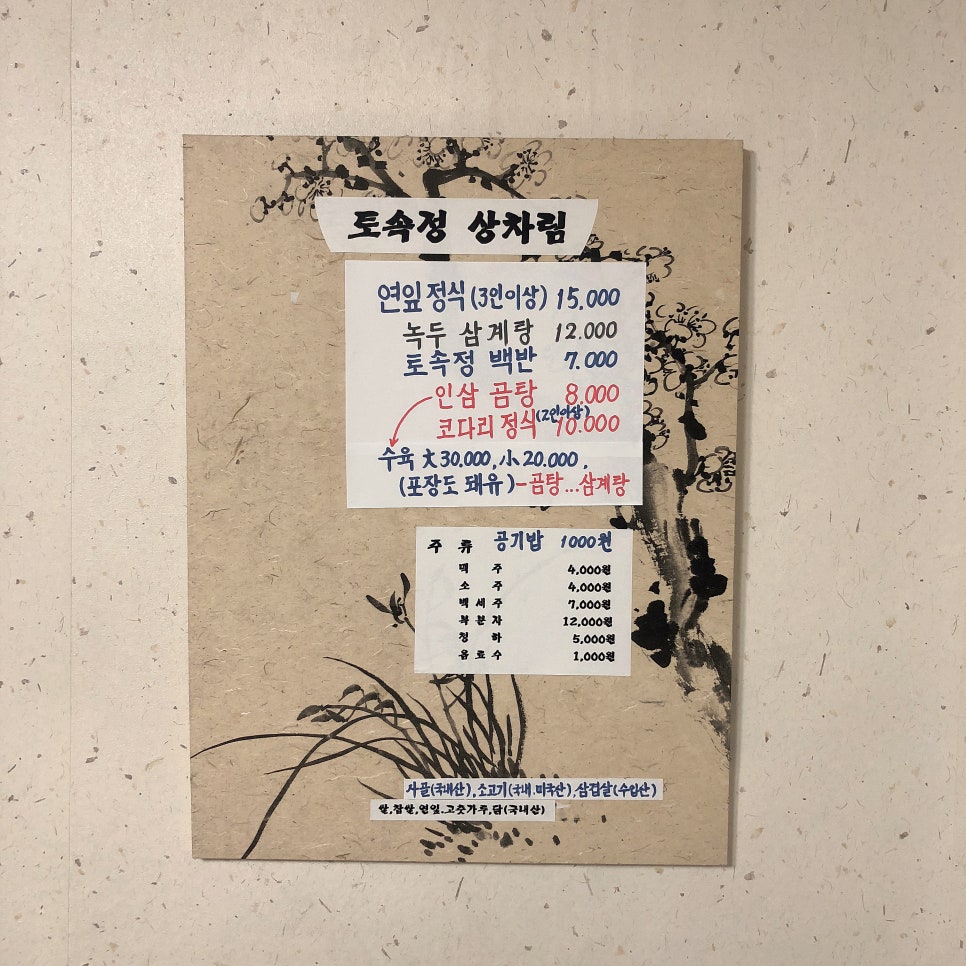 토속정 상차림
연잎정식(3인이상) 15.000
녹두 삼계탕 12.000
토속정 백반 7.000
인삼 곰탕 8.000
코다리정식(2인이상) 10.000
수육 大30.000,小20.000,
(포장도 돼유)-곰탕...삼계탕
주 류 공기밥 1000원
맥 주 4,000원
소 주 4,000원
백 세 주 7,000원
복 분 자 12,000원
청 하 5,000원
음 료 수 1,000원
사골(국내산),소고기(국내.미국산),삼겹살(수입산)
쌀,찹쌀,연잎.고춧가루,닭(국내산)